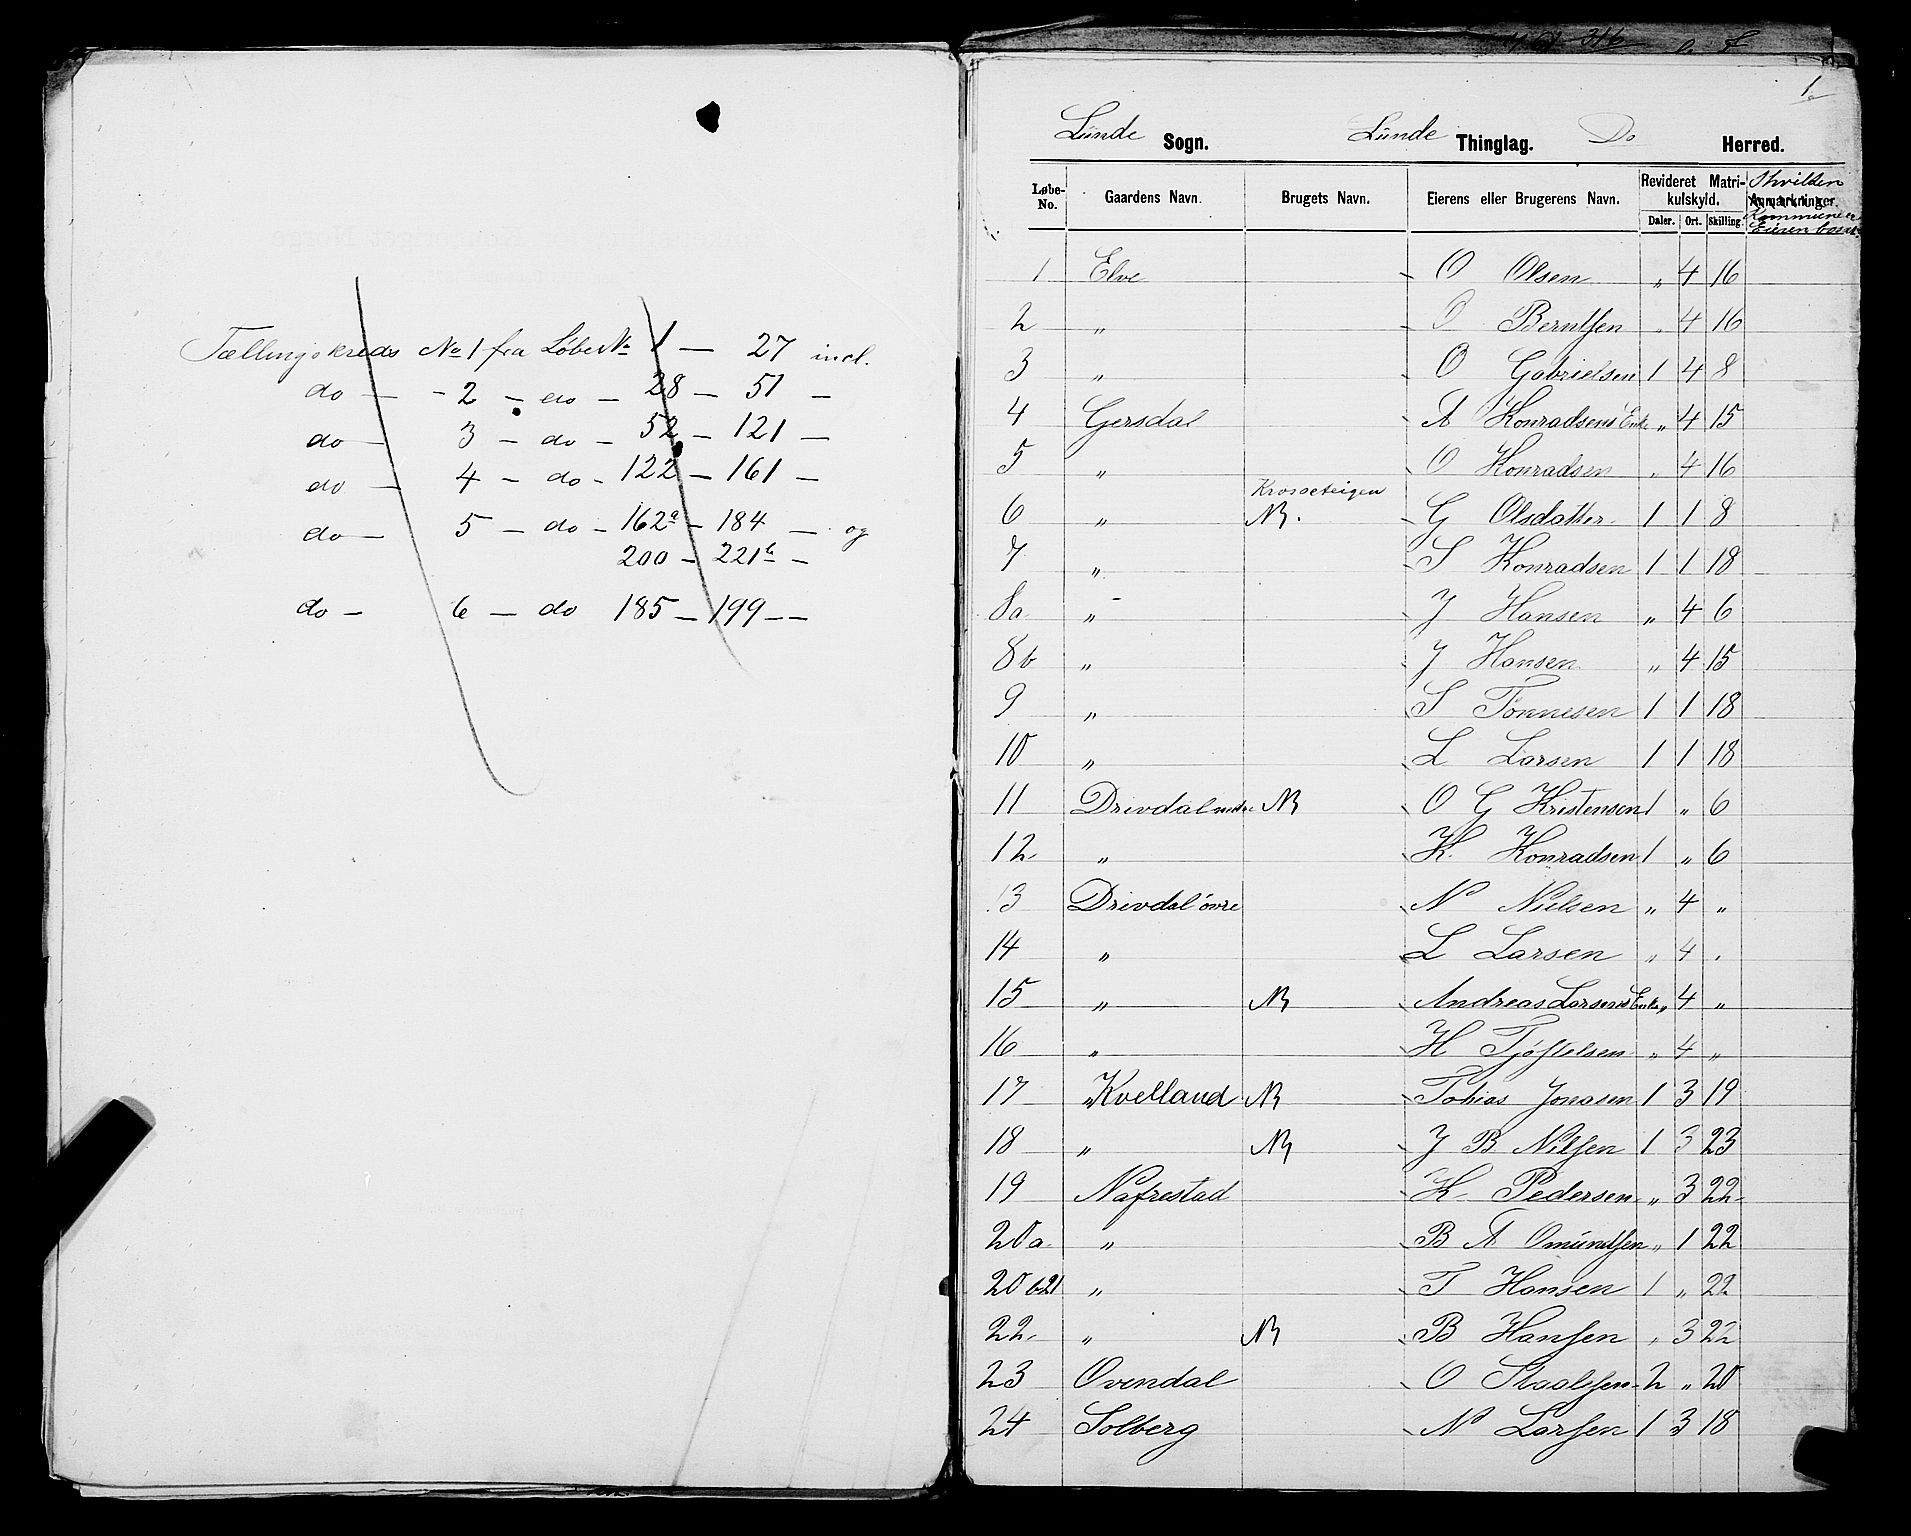 Tællingskreds No 1 fra Löbe No 1 — 27 incl.
do — - 2 — do — 28 — 51 —
do — 3 — do — 52 — 121 —
do — 4 — do - 122 — 161 —
do — 5 — do — 162a — 184 — og
200 — 221b —
do — 6 — do 185 — 199 — —
1
Lunde Sogn. Lunde Thinglag. Do Herred.
Løbe-No. Gaardens Navn. Brugets Navn. Eierens eller Brugerens Navn. Revideret Matrikulskyld. Anmærkninger.
Daler. Ort. Skilling.
Hvilken Kommune er Eieren bosat
1 Elve O Olsen „ 4 16
2 „ O Berntsen „ 4 16
3 „ O Gabrielsen 1 4 8
4 Gersdal A Konradsens Enke „ 4 15
5 „ O Konradsen „ 4 16
Krosseteigen
6 „ NB. G Olsdatter 1 1 8
7 „ S Konradsen 1 1 18
8a „ J Hansen „ 4 6
8b „ J Hansen „ 4 15
9 „ S Tönnesen 1 1 18
10 „ L Larsen 1 1 18
11 Drivdal nedre NB O G Kristensen 1 „ 6
12 „ K. Konradsen 1 „ 6
13 Drivdal övre N Nielsen „ 4 „
14 „ L Larsen „ 4 „
15 „ NB Andreas Larsens Enke „ 4 „
16 „ H Tjöstelsen „ 4 „
17 „Kvelland NB Tobias Jonasen 1 3 19
18 „ NB J B Nilsen 1 3 23
19 Nafrestad K. Pedersen „ 3 22
20a „ B A Omundsen „ 1 22
20b 21 „ T Hansen 1 „ 22
22 „ NB B Hansen „ 3 22
23 Ovendal O Staalesen 2 „ 20
24 Solberg N Larsen 1 3 18